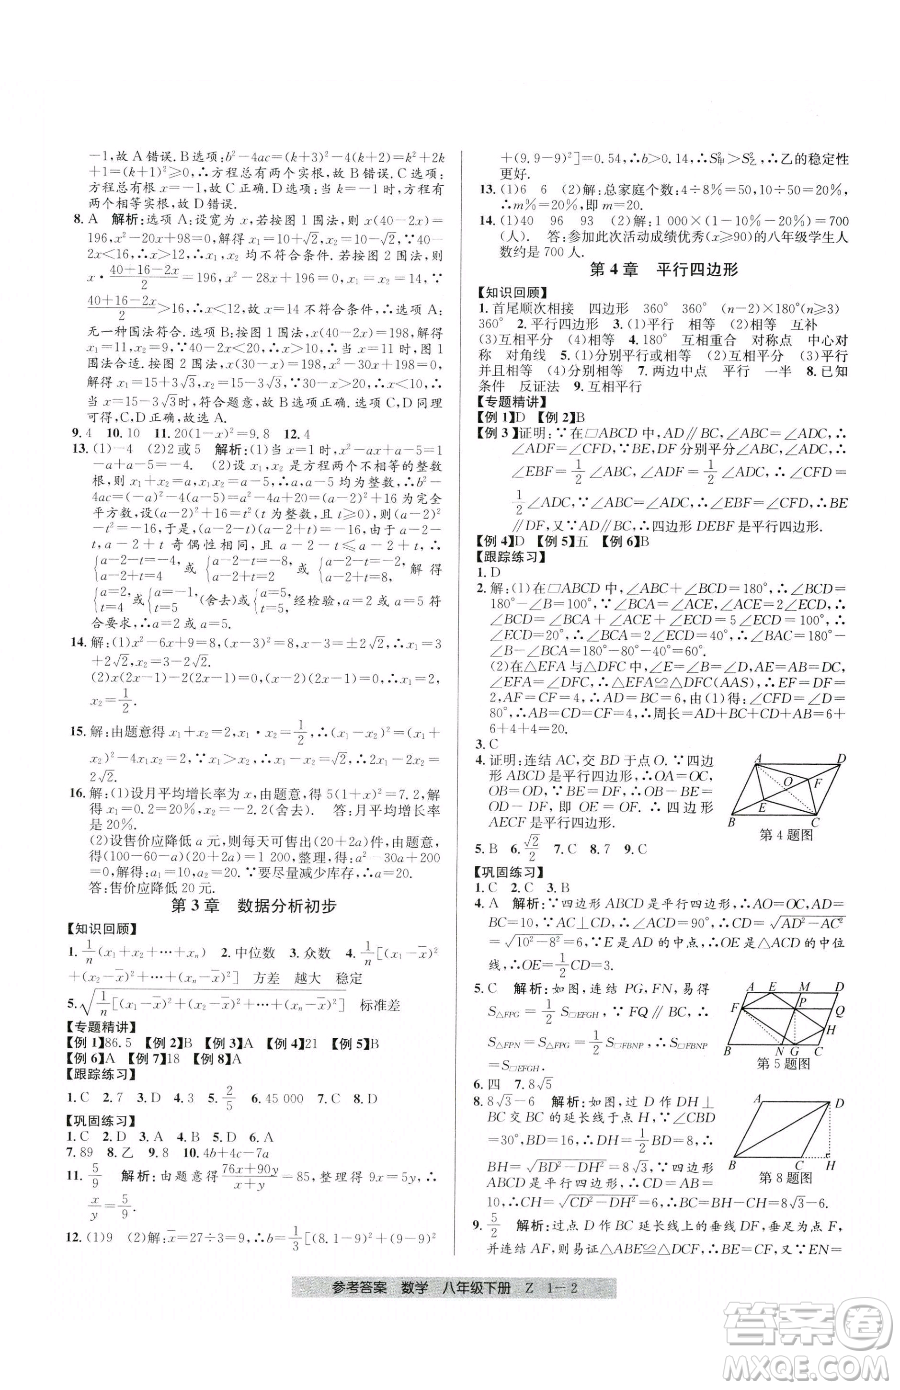 －1,故 A 错误.B 选项:b²－4ac=(k+3)²－4(2k+2)=(k－1)²≥0,
方程总有两个实根,故 B 正确.C 选项:方程总有两个实根.方程有
两个相等实根,故 D 错误.
8. A 解析:选项 A:设宽为 x,若按图 1 围法,则 x(40－2x)=
196,x²－20x+98=0,解得 x₁=10+√2,x₂=10－√2,∵40－
2x≤16,∴x≥12,∴x 均不符合条件.若按图 2 围法,则
x · (40+16－2x)/2=196,x²－28x+196=0,解得 x₁=x₂=14,∵
(40+16－2x)/2>16,∴x<12,∴x=14 不符合条件,∴选项 A:
无一种围法符合题意.按图 1 围法 x(40－2x)=198,解得 x₁=
11,x₂=9,∵40－2x≤16,∴x≥12,∴均不符合条件,∴图 1
围法不合适.按图 2 围法,则 x(30－x)=198,x²－30x+198=
0,x₁=15+3√3,x₂=15－3√3,∵30－x>16,∴x<14,∴当
x=15－3√3时,符合题意,所以有一种围法符合题意.C,D 同理
可得,C,D 正确,故选 A.
9. 4 10. 10 11. 20(1－x)²=9.8 12. 4
13. (1)－4 (2)2或5 解析:(1)把 x=1 代入 x²－ax+a－5=1－
a+a－5=－4. (2)设 x₁,x₂ 是方程两个不相等的整数
根,则 x₁+x₂=a,x₁x₂=a－5 均为整数,∴a 为整数,∴Δ=
a²－4ac=(－a)²－4(a－5)=a²－4a+20=(a－2)²+16 为完全
平方数,设(a－2)²+16=t²(t 为整数,且 t≥0),则(a－2)²－
t²=－16,于是,(a－2－t)(a－2+t)=－16,由于 a－2－
t,a－2+t 奇偶性相同,且 a－2－t≤a－2+t,∴
{a－2－t=－4, a－2+t=4 或 {a－2－t=－2, a－2+t=8 或 {a－2－t=－8, a－2+t=2, 解得
{a=2, t=4 或 {a=－1, t=5 (舍去)或 {a=5, t=5, 经检验,a=2或 a=5 符
合要求,∴a=2或 a=5.
14. 解:(1)x²－6x+9=8,(x－3)²=8,x－3=±2√2,∴x₁=3
+2√2,x₂=3－2√2.
(2)x(2x－1)－2(2x－1)=0,(x－2)(2x－1)=0,∴x₁=2,
x₂=1/2.
15. 解:由题意得 x₁+x₂=2,x₁·x₂=1/2,∴原式=(x₁
+x₂)²－4x₁x₂=4－2=2,∴x₁－x₂=±√2,∴原式=2×
2√2.
16. 解:(1)设月平均增长率为 x,由题意,得 5(1+x)²=7.2,解
得 x₁=0.2=20%,x₂=－2.2(舍去). 答:月平均增长率是
20%.
(2)设售价应降低 a 元,则每天可售出(20+2a)个,由题意,
得(40－a)(20+2a)=1 200,整理,得 a²－30a+200=0,解
得 a₁=10,a₂=20.∵要尽量减少库存,∴a=20.
答:售价应降低 20 元.
第 3 章 数据分析初步
【知识回顾】
1. 1/n(x₁+x₂+…+xₙ) 2. 中位数 3. 众数 4. 1/n[(x₁－x̄)²
+(x₂－x̄)²+…+(xₙ－x̄)²] 方差 越大 稳定
5. √(1/n[(x₁－x̄)²+(x₂－x̄)²+…+(xₙ－x̄)²]) 标准差
【专题精讲】
【例 1】86.5 【例 2】B 【例 3】A 【例 4】21 【例 5】B
【例 6】A 【例 7】18 【例 8】A
【跟踪练习】
1. C 2. 7 3. D 4. D 5. 2/5 6. 45 000 7. C 8. D
【巩固练习】
1. C 2. A 3. A 4. B 5. C 6. A
7. 89 8. 乙 9. D 10. 4b+4c－7a
11. 5/9 解析:由题意得(76x+90y)/(x+y)=85,整理得 9x=5y,∴
x/y=5/9.
12. (1)9 (2)解:x̄=27÷3=9,∴b=1/3[(8.1－9)²+(9－9)²
+(9.9－9)²]=0.54,∴b>0.14,∴S²甲>S²乙,∴乙的稳定性
更好.
13. (1)6 6 (2)解:总家庭个数:4÷8%=50,10÷50=20%,
∴m%=20%,即 m=20.
14. (1)40 96 93 (2)解:1 000×(1－20%－10%)=700
(人). 答:参加此次活动成绩优秀(x≥90)的八年级学生人
数约是 700 人.
第 4 章 平行四边形
【知识回顾】
1. 首尾顺次相接 四边形 360° 360° (n－2)×180°(n≥3)
360° 2. 平行四边形 3. (1)平行 相等 (2)相等 互补
(3)互相平分 (4)相等 4. 180° 互相重合 对称点 中心对
称 对角线 5. (1)分别平行或相等 (2)相等 (3)平行且相等
并且相等 6. 分别相等 7. 两边中点 平行 一半 8. 已知
条件 反证法 9. 互相平行
【专题精讲】
【例 1】D 【例 2】B
【例 3】证明:∵在□ABCD 中,AD∥BC,∠ABC=∠ADC,∴
∠ADF=∠CFD.∵BE,DF 分别平分∠ABC,∠ADC,∴
∠EBF=1/2∠ABC,∠ADF=1/2∠ADC,∴∠CFD=
1/2∠ADC,∵∠ADC=∠ABC,∴∠EBF=∠CFD,∴BE
∥DF,又∵AD∥BC,∴四边形 DEBF 是平行四边形.
【例 4】D 【例 5】五 【例 6】B
【跟踪练习】
1. D
2. 解:(1)在□ABCD 中,∠ABC+∠BCD=180°,∴∠BCD=
180°－∠B=100°,∵∠BCA=∠ACE,∠ACE=2∠ECD,∴
∠BCD=∠BCA+∠ACE+∠ECD=5∠ECD=100°,
∴∠ECD=20°,∴∠BCA=∠ACE=40°,∴∠BAC=180°
－∠BCA－∠B=60°.
(2)在△EFA 与△DFC 中,∠E=∠D,∠EFA=∠DFC,
EA=DC,∴△EFA≌△DFC(AAS),∴EF=DF=
2,AF=CF=4,∴AD=BC=6,由(1)得:∠CFD=∠D=
80°,∴AB=CD=CF=4,∴周长=AD+CD+AB+BC=6+
6+4+4=20.
3. C
4. 证明:连结 AC,交 BD 于点 O.∵四边
形 ABCD 是平行四边形,∴OA=OC,
OB=OD,∵BE=DF,∴OB－BE=
OD－DF,即 OE=OF,∴四边形
AECF 是平行四边形.
第 4 题图
5. B 6. √2/2 7. C 8. 7 9. C
【巩固练习】
1. C 2. C 3. B
4. A 解析:∵四边形 ABCD 是平行四边形,∴AO=OC,AD=
BC=10,∵AC⊥CD,∴∠ACD=90°,∴CD=√(AD²－AC²)
=√(10²－8²)=6,∵E 是 AD 的中点,∴OE 是△ACD 的中位
线,∴OE=1/2CD=3.
5. C 解析:如图,连结 PG,FN,易得
S△FPG=1/2 S□EFGH,∵FQ∥BC,∴
S△FPN=S△FPG=1/2 S□FBNP,∴S□FBNP
=S□EFGH.
第 5 题图
6. 四 7. 8√5
8. 8√3－6 解析:如图,过 D 作 DH⊥
BC 交 BC 的延长线于点 H,∵∠CBD
=30°,∴DH=1/2BD=8,
BH=√(BD²－DH²)=8√3,∵四边形
ABCD 是平行四边形,∴CD=AB=
10,∴CH=√(CD²－DH²)=6,∴BC=BH－CH=8√3－6.
第 8 题图
9. 5/2 解析:过点 D 作 BC 延长线上的垂线 DF,垂足为点 F,
连接 AF,∵四边形 ABCD 是菱形,∴△ABE≌△DCF,∴
参考答案 数学 八年级下册 Z 1－2
答案圈
MXQE.COM